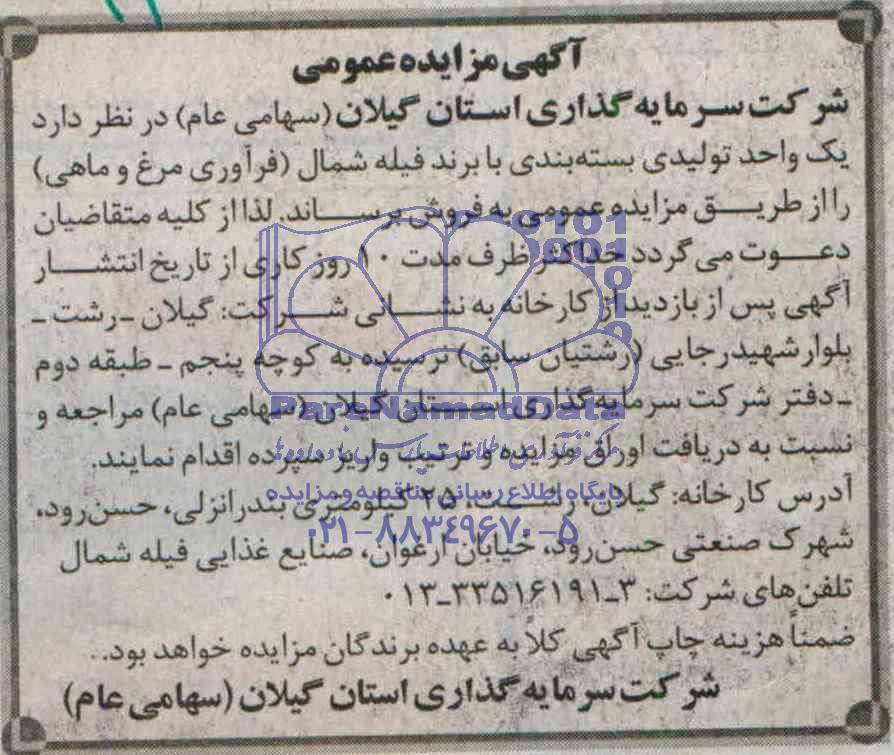 آگهی مزایده عمومی
شرکت سرمایه گذاری استان گیلان (سهامی عام) در نظر دارد
یک واحد تولیدی بسته‌بندی با برند فیله شمال (فرآوری مرغ و ماهی)
را از طریق مزایده عمومی به فروش برساند. لذا از کلیه متقاضیان
دعوت می گردد حداکثر ظرف مدت ۱۰ روز کاری از تاریخ انتشار
آگهی پس از بازدید از کارخانه به نشانی شرکت: گیلان ـ رشت ـ
بلوار شهید رجایی (رشتیان سابق) نرسیده به کوچه پنجم ـ طبقه دوم
ـ دفتر شرکت سرمایه گذاری استان گیلان (سهامی عام) مراجعه و
ParsNamadData
نسبت به دریافت اوراق مزایده و ترتیب واریز سپرده اقدام نمایند.
پایگاه اطلاع رسانی مناقصه و مزایده
آدرس کارخانه: گیلان، رشت، ۲۵ کیلومتری بندرانزلی، حسن‌رود،
۰۲۱-۸۸۳۴۹۶۷۰-۵
شهرک صنعتی حسن‌رود، خیابان ارغوان، صنایع غذایی فیله شمال
تلفن‌های شرکت: ۳ـ۳۳۵۱۶۱۹۱ـ۰۱۳
ضمناً هزینه چاپ آگهی کلاً به عهده برندگان مزایده خواهد بود..
شرکت سرمایه گذاری استان گیلان (سهامی عام)